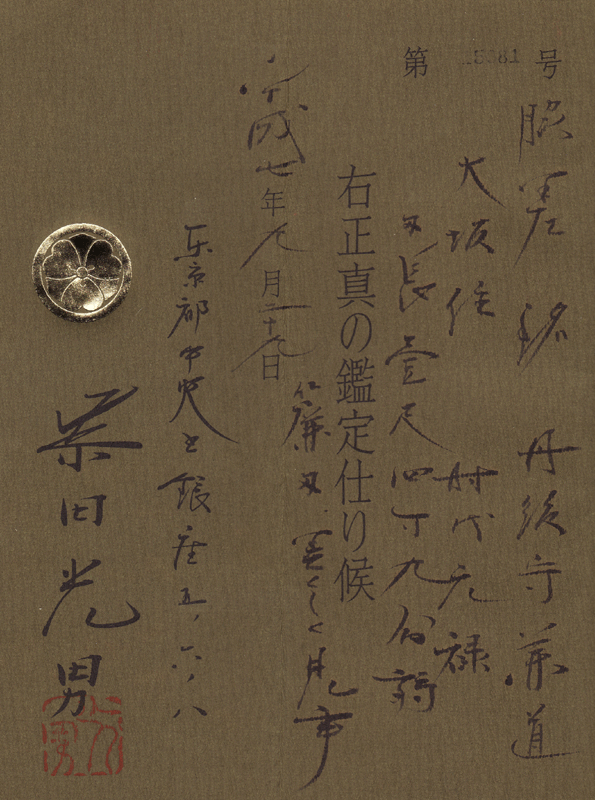 第 号
脇差 銘 丹後守兼道
大坂住 時代元禄
刃長壹尺四寸九分
右正真の鑑定仕り候
刃 実 見事
平成七年九月二十九日
東京都中央区銀座五ノ六ノ八
柴田光男